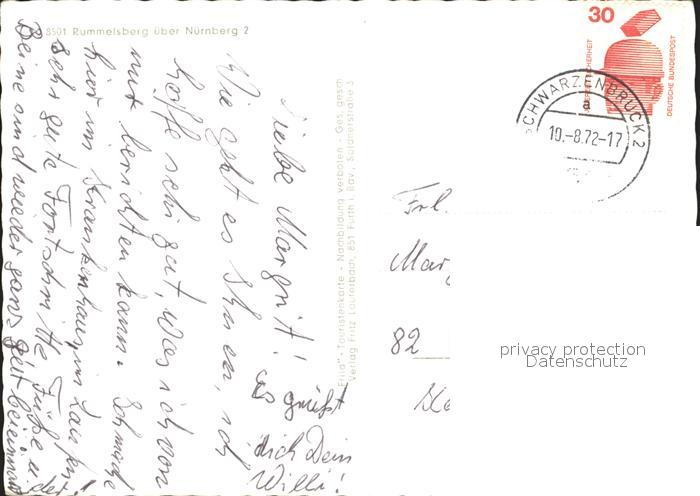 8501 Rummelsberg über Nürnberg 2
Liebe Margrit!
Wie geht es Ihnen, ich
hoffe sehr gut, was ich von
mir berichten kann.
hier im Krankenhaus im Laufen!
sehr gute Fortschritte Füße u
Beine sind wieder ganz gut beieinander!
Es grüßt
dich Dein
Willi!
"Touristenkarte - Nachbildung verboten - Ges. gesch
Verlag Fritz Lauterbach, 851 Fürth i. Bay.,
30
DEUTSCHE BUNDESPOST
SCHWARZENBRUCK 2
a
10.-8.72-17
Frl.
Mar
82
privacy protection
Datenschutz